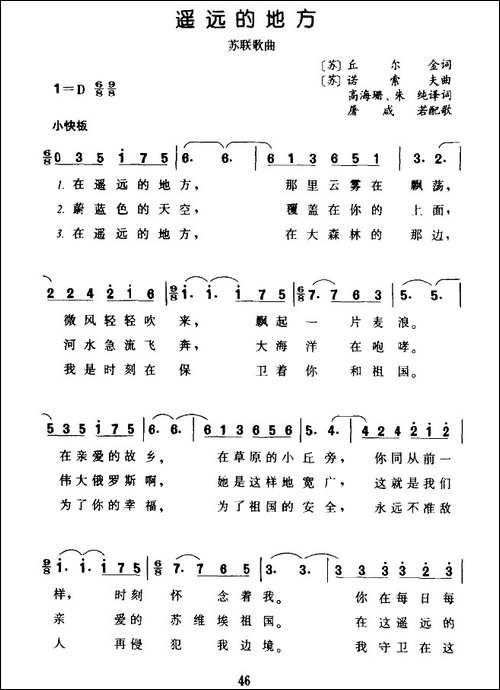 遥远的地方
苏联歌曲
〔苏〕丘尔金词
〔苏〕诺索夫曲
1=D 6/8 9/8
高海珊、朱 纯译词
屠咸若配歌
小快板
6/8 0 3 5 1 7 5 | 6. 6. | 6 1 3 6 5 1 | 3. 2. |
1. 在遥远的地方, 那里云雾在飘荡,
2. 蔚蓝色的天空, 覆盖在你的上面,
3. 在遥远的地方, 在大森林的那边,
2 2 4 2 1 6 | 9/8 1. 1. 1 7 5 | 6/8 7. 7 6 3 | 5. 5. |
微风轻轻吹来, 飘起一片麦浪。
河水急流飞奔, 大海洋在咆哮。
我是时刻在保卫着你和祖国。
5 3 5 1 7 5 | 6. 6. | 6 1 3 6 5 6 | 5. 4. | 4 2 2 4 2 1 2 |
在亲爱的故乡, 在草原的小丘旁, 你同从前一
伟大俄罗斯啊, 她是这样地宽广, 这就是我们
为了你的幸福, 为了祖国的安全, 永远不准敌
9/8 1. 1. 1 7 5 | 6/8 7. 7 6 5 | 3. 3. | 3 3 3 3 2 |
样, 时刻怀念着我。 你在每日每
亲爱的苏维埃祖国。 在这遥远的
人再侵犯我边境。 我守卫在这
46